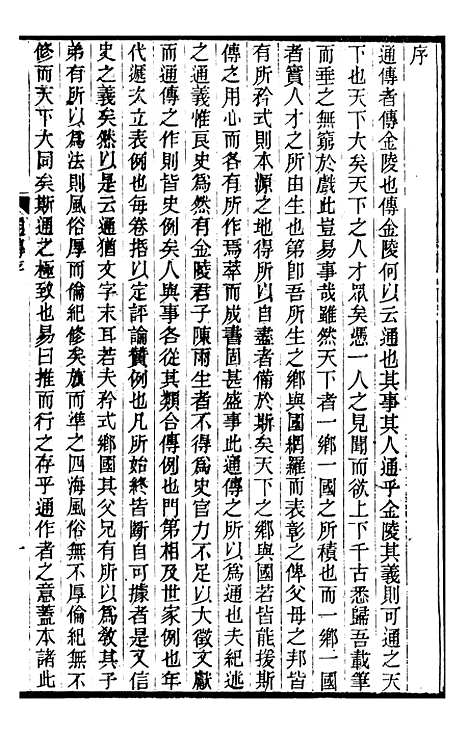 序
通傳者傳金陵也傳金陵何以云通也其事其人通乎金陵其義則可通之天
下也天下大矣天下之人才眾矣憑一人之見聞而欲上下千古悉歸吾載筆
而垂之無窮於戲此豈易事哉雖然天下者一鄉一國之所積也而一鄉一國
者實人才之所由生也第卽吾所生之鄉與國網羅而表彰之俾父母之邦皆
有所矜式則本源之地得所以自盡者備於斯矣天下之鄉與國若皆能援斯
傳之用心而各有所作焉萃而成書固甚盛事此通傳之所以為通也夫紀述
之通義惟良史為然有金陵君子陳雨生者不得為史官力不足以大徵文獻
而通傳之作則皆史例矣人與事各從其類合傳例也門第相及世家例也年
代遞次立表例也每卷揩以定評論贊例也凡所始終皆斷自可據者是又信
史之義矣然以是云通猶文字末耳若夫矜式鄉國其父兄有所以為教其子
弟有所以為法則風俗厚而倫紀修矣放而準之四海風俗無不厚倫紀無不
修而天下大同矣斯通之極致也易曰推而行之存乎通作者之意蓋本諸此
通傳序
一